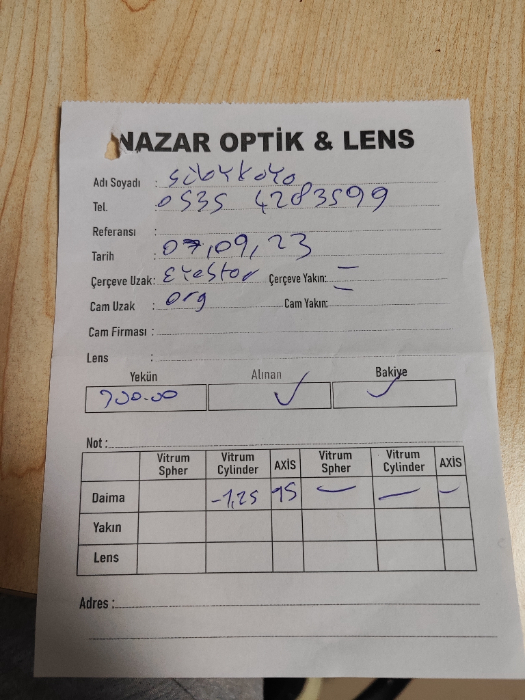 NAZAR OPTİK & LENS
Adı Soyadı :
Tel. : 0535 4283599
Referansı :
Tarih : 07,09,23
Çerçeve Uzak: Çerçeve Yakın: —
Cam Uzak : org Cam Yakın: —
Cam Firması :
Lens :
Yekün Alınan Bakiye
700.00 ✓ ✓
Not :
Vitrum Spher Vitrum Cylinder AXİS Vitrum Spher Vitrum Cylinder AXİS
Daima -1,25 15 — — —
Yakın
Lens
Adres :